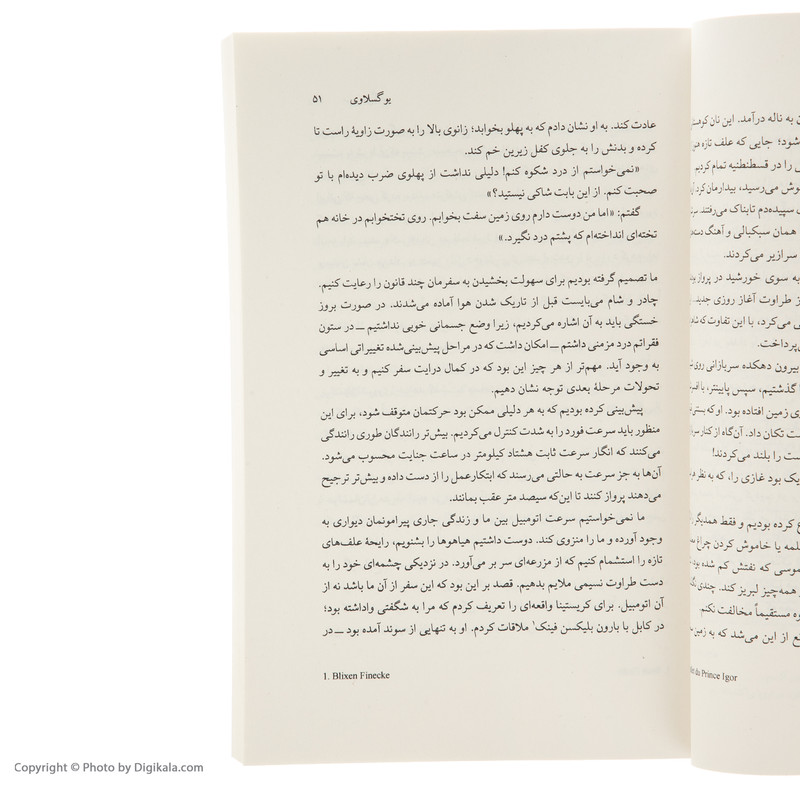 یوگسلاوی ۵۱
عادت کند. به او نشان دادم که به پهلو بخوابد؛ زانوی بالا را به صورت زاویهٔ راست تا
کرده و بدنش را به جلوی کفل زیرین خم کند.
«نمی‌خواستم از درد شکوه کنم! دلیلی نداشت از پهلوی ضرب دیده‌ام با تو
صحبت کنم. از این بابت شاکی نیستید؟»
گفتم: «اما من دوست دارم روی زمین سفت بخوابم. روی تختخوابم در خانه هم
تخته‌ای انداخته‌ام که پشتم درد نگیرد.»
ما تصمیم گرفته بودیم برای سهولت بخشیدن به سفرمان چند قانون را رعایت کنیم.
چادر و شام می‌بایست قبل از تاریک شدن هوا آماده می‌شدند. در صورت بروز
خستگی باید به آن اشاره می‌کردیم، زیرا وضع جسمانی خوبی نداشتیم ــ در ستون
فقراتم درد مزمنی داشتم ــ امکان داشت که در مراحل پیش‌بینی‌شده تغییراتی اساسی
به وجود آید. مهم‌تر از هر چیز این بود که در کمال درایت سفر کنیم و به تغییر و
تحولات مرحلهٔ بعدی توجه نشان دهیم.
پیش‌بینی کرده بودیم که به هر دلیلی ممکن بود حرکتمان متوقف شود، برای این
منظور باید سرعت فورد را به شدت کنترل می‌کردیم. بیش‌تر رانندگان طوری رانندگی
می‌کنند که انگار سرعت ثابت هشتاد کیلومتر در ساعت جنایت محسوب می‌شود.
آن‌ها به جز سرعت به حالتی می‌رسند که ابتکارعمل را از دست داده و بیش‌تر ترجیح
می‌دهند پرواز کنند تا این‌که سیصد متر عقب بمانند.
ما نمی‌خواستیم سرعت اتومبیل بین ما و زندگی جاری پیرامونمان دیواری به
وجود آورده و ما را منزوی کند. دوست داشتیم هیاهوها را بشنویم، رایحهٔ علف‌های
تازه را استشمام کنیم که از مزرعه‌ای سر بر می‌آورد. در نزدیکی چشمه‌ای خود را به
دست طراوت نسیمی ملایم بدهیم. قصد بر این بود که این سفر از آن ما باشد نه از
آن اتومبیل. برای کریستینا واقعه‌ای را تعریف کردم که مرا به شگفتی واداشته بود؛
در کابل با بارون بلیکسن فینک۱ ملاقات کردم. او به تنهایی از سوند آمده بود ــ در
1. Blixen Finecke
ن به ناله درآمد. این نان
شود؛ جایی که علف تازه
را در قسطنطنیه تمام کردیم
وش می‌رسید، بیدارمان
سپیده‌دم تابناک می‌رفتند
همان سبکبالی و آهنگ
سرازیر می‌کردند.
به سوی خورشید در پرواز
ز طراوت آغاز روزی جدید
ی می‌کرد، با این تفاوت که
ی‌پرداخت.
بیرون دهکده سربازانی روی
گذشتیم، سپس پایینتر، با
ی زمین افتاده بود. او که
ست تکان داد. آن‌گاه از کنار
ست را بلند می‌کردند!
یک بود غازی را، که به نظر
ع کرده بودیم و فقط همدیگر
لمه یا خاموش کردن چراغ
موسی که نفتش کم شده بود
همه‌چیز لبریز کند. چندی
ره مستقیماً مخالفت نکنم
ع از این می‌شد که به
du Prince Igor
Copyright © Photo by Digikala.com